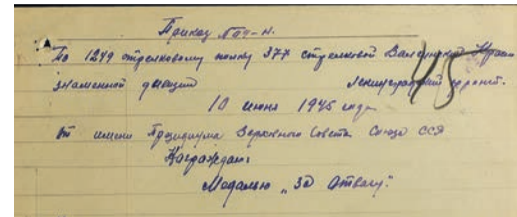 Приказ №09-Н.
По 1249 стрелковому полку 377 стрелковой Валгинской Красно
знаменной дивизии Ленинградский фронт.
10 июня 1945 года
От имени Президиума Верховного Совета Союза ССР
Награждаю:
Медалью „За Отвагу".
45